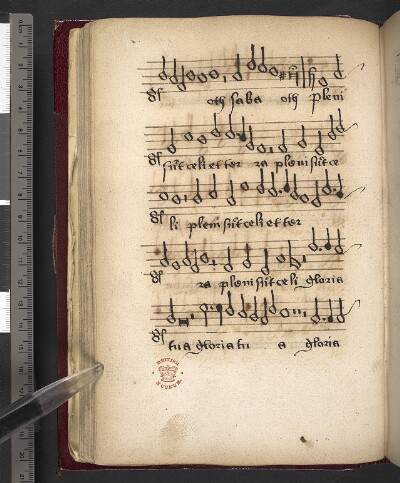 oth saba oth pleni
sūt celi et ter ra pleni sūt ce
li pleni sūt celi et ter
ra pleni sūt celi gloria
tua gloria tu a gloria